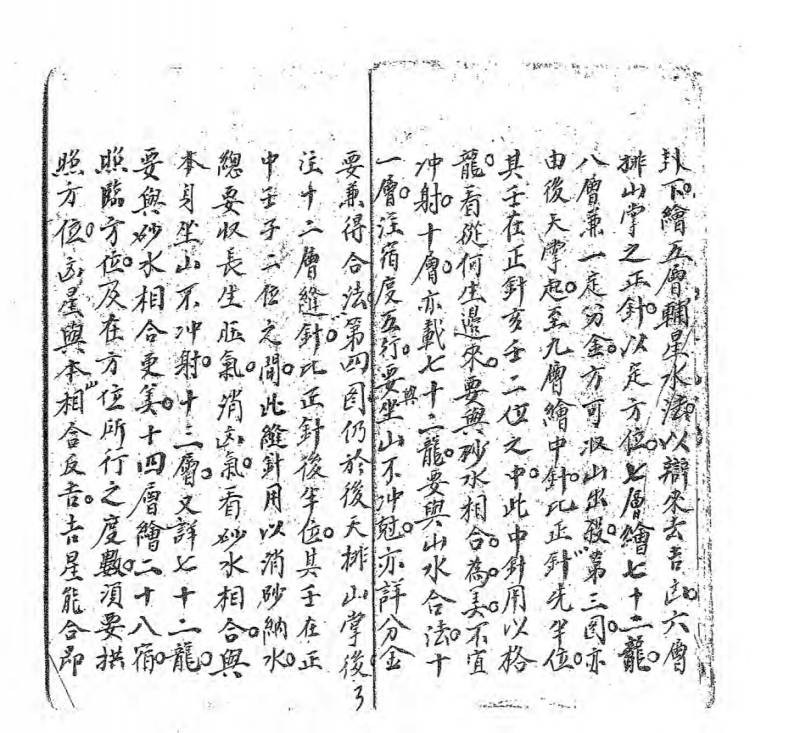 卦下。繪五層輔星水法以辯來去吉凶。六層
排山掌之正針。以定方位。七層繪七十二龍。
八層兼一定分金。方可收山出殺。第三圖亦
由後天掌起。至九層繪中針。比正針先半位。
其壬在正針亥壬二位之中。此中針用以格
龍。看從何生邊來。要與砂水相合。為美。不宜
冲射。十層。亦載七十二龍。要與山水合法。十
一層。注宿度五行。要與坐山不冲尅。亦詳分金
要兼得合法。第四圖仍於後天排山掌後
注十二層縫針。比正針後半位。其壬在正
中壬子二位之間。此縫針用以消砂納水。
總要收長生旺氣。消凶氣。看砂水相合。與
本身坐山不冲射。十三層。又詳七十二龍。
要與砂水相合更美。十四層繪二十八宿。
照臨方位。及在方位所行之度數。須要拱
照方位。凶星與本山相合反吉。吉星能合即
3